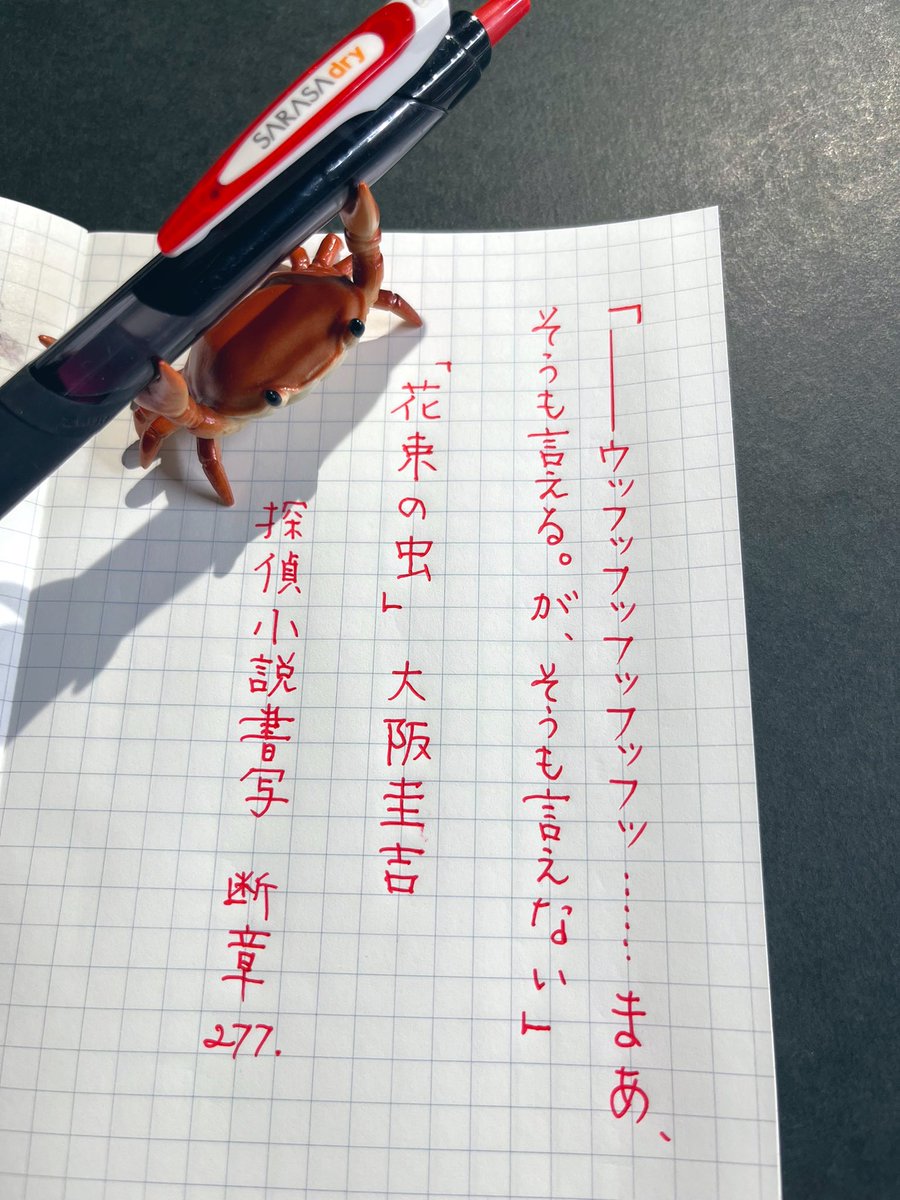 「――ウッフッフッフッフッフッフッ……まあ、
そうも言える。が、そうも言えない」
「花束の虫」 大阪圭吉
探偵小説書写 断章
277.
SARASA dry